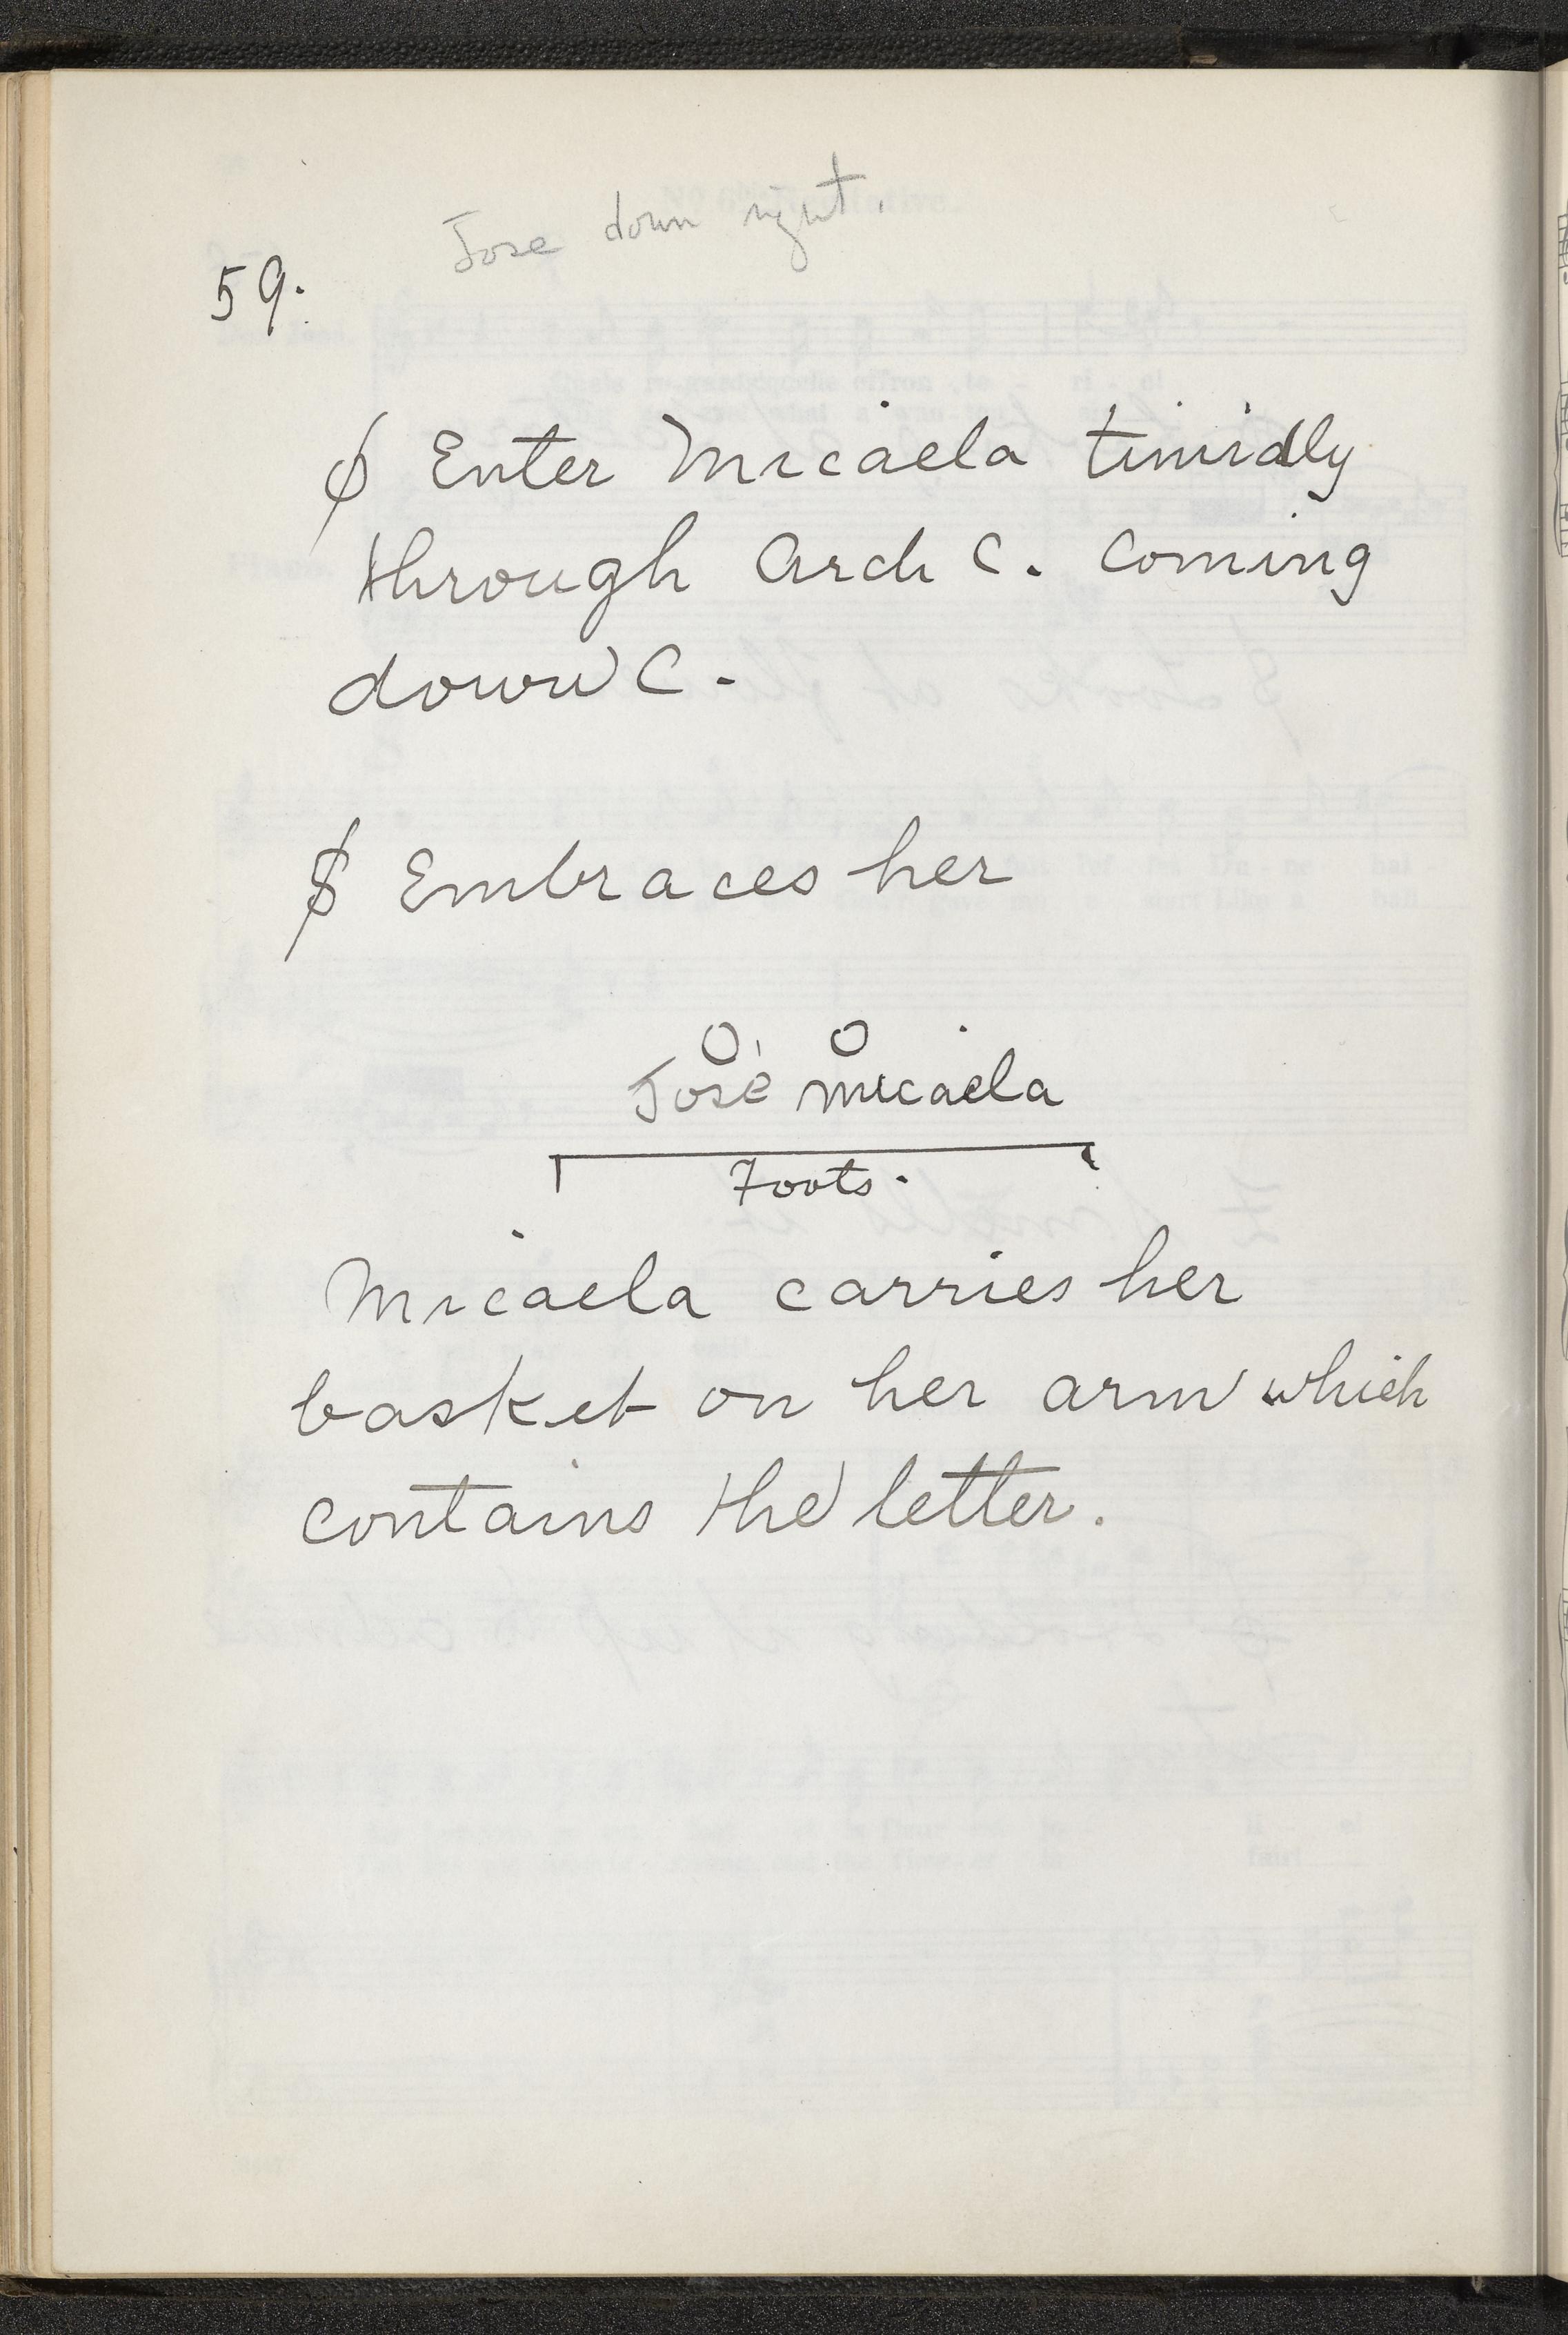 Jose down right.
59.
∮ Enter Micaela timidly
through Arch C. Coming
down C.
$ Embraces her
O O
José Micaela
Foots.
Micaela carries her
basket on her arm which
contains the letter.